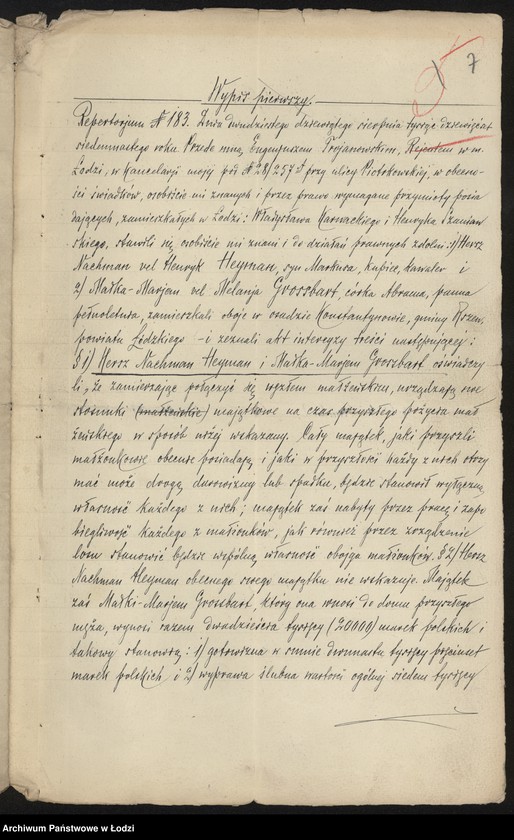 7
Wypis pierwszy.
Repertorjum № 183. Dnia dwudziestego dziewiątego sierpnia tysiąc dziewięćset
siedemnastego roku Przede mną, Eugenjuszem Trojanowskim, Rejentem w m.
Łodzi, w Kancelarji mojej pod № 28/257 przy ulicy Piotrkowskiej w obecno-
ści świadków, osobiście mi znanych i przez prawo wymagane przymioty posia
dających, zamieszkałych w Łodzi: Władysława Karnackiego i Henryka
skiego, stawili się osobiście mi znani i do działań prawnych zdolni: 1) Hersz
Nachman vel Henryk Heyman, syn Markusa, kupiec, kawaler i
2) Małka-Marjem vel Melanja Grossbart, córka Abrama, panna
pełnoletnia, zamieszkali oboje w osadzie Konstantynowie, gminy
powiatu Łódzkiego – i zeznali akt intercyzy treści następującej:
§ 1) Hersz Nachman Heyman i Małka-Marjem Grossbart oświadczy
li, że zamierzając połączyć się węzłem małżeńskim, urządzają swe
stosunki (małżeńskie) majątkowe na czas przyszłego pożycia mał
żeńskiego w sposób niżej wskazany. Cały majątek, jaki przyszli
małżonkowie obecnie posiadają i jaki w przyszłości każdy z nich otrzy
mać może drogą darowizny lub spadku, będzie stanowił wyłączną
własność każdego z nich; majątek zaś nabyty przez pracę i zapo
biegliwość każdego z małżonków, jak również przez zrządzenie
losu stanowić będzie wspólną własność obojga małżonków. § 2) Hersz
Nachman Heyman obecnego swego majątku nie wskazuje. Majątek
zaś Małki-Marjem Grossbart, który ona wnosi do domu przyszłego
męża, wynosi razem dwadzieścia tysięcy (20000) marek polskich i
takowy stanowią: 1) gotowizna w sumie dwunastu tysięcy pięciuset
marek polskich i 2) wyprawa ślubna wartości ogólnej siedem tysięcy
Archiwum Państwowe w Łodzi